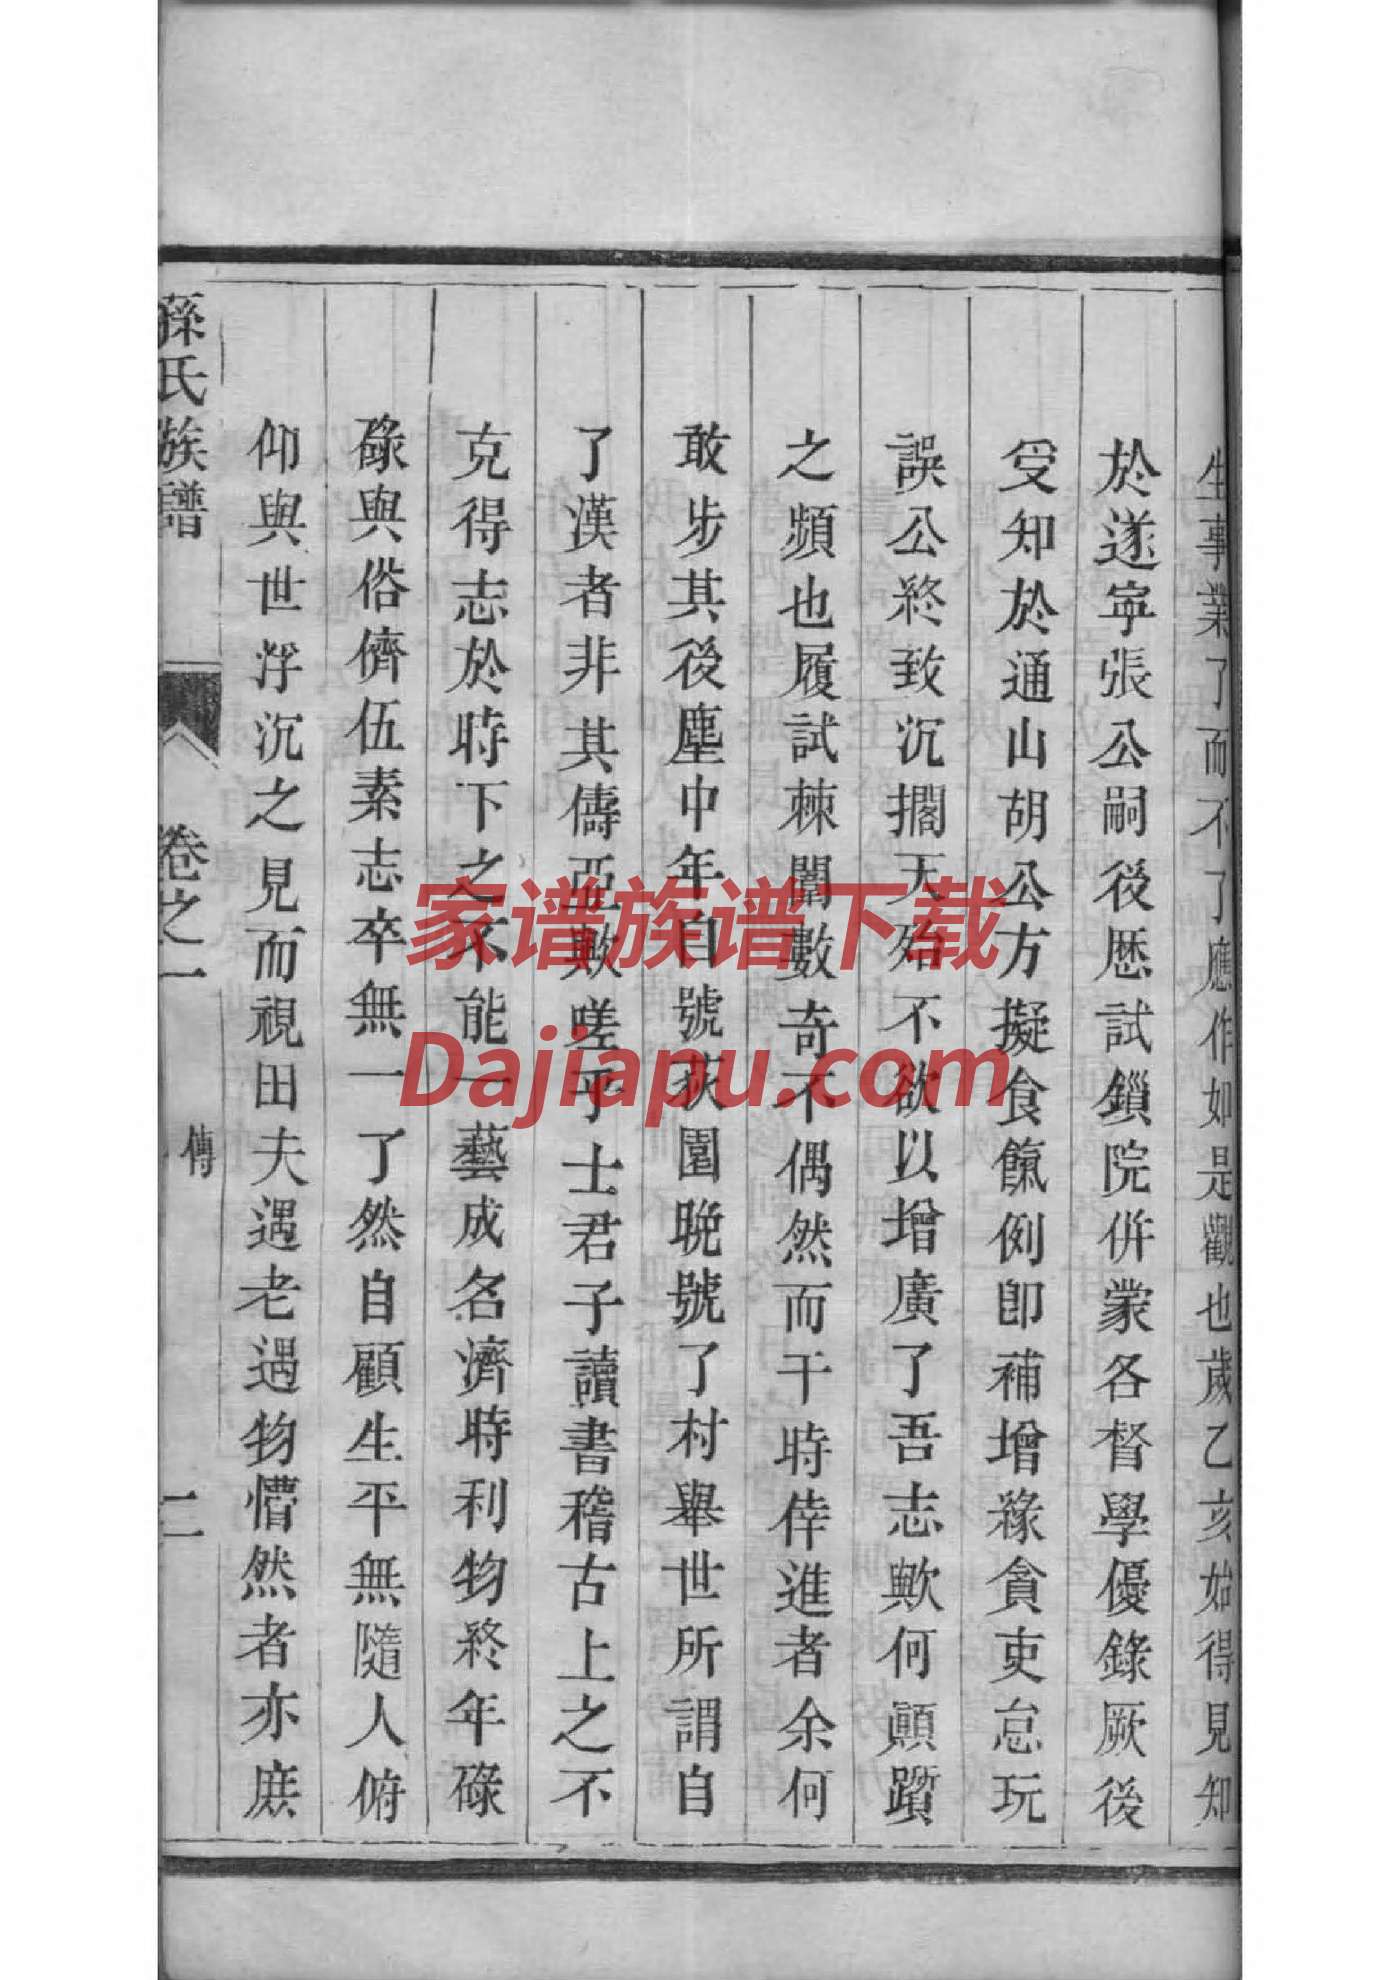 生事業了而不了應作如是觀也歲乙亥始得見知
於遂寧張公嗣後歷試鎖院併蒙各督學優錄厥後
受知於通山胡公方擬食餼例卽補增緣貪吏怠玩
誤公終致沉擱天殆不欲以增廣了吾志歟何顚躓
之頻也履試棘闈數奇不偶然而干時倖進者余何
敢步其後塵中年自號荻園晩號了村舉世所謂自
了漢者非其儔亞歟嗟乎士君子讀書稽古上之不
克得志於時下之不能一藝成名濟時利物終年碌
碌與俗儕伍素志卒無一了然自顧生平無隨人俯
仰與世浮沉之見而視田夫遇老遇物懵然者亦庶
孫氏族譜
卷之一
傳
二
家谱族谱下载
Dajiapu.com